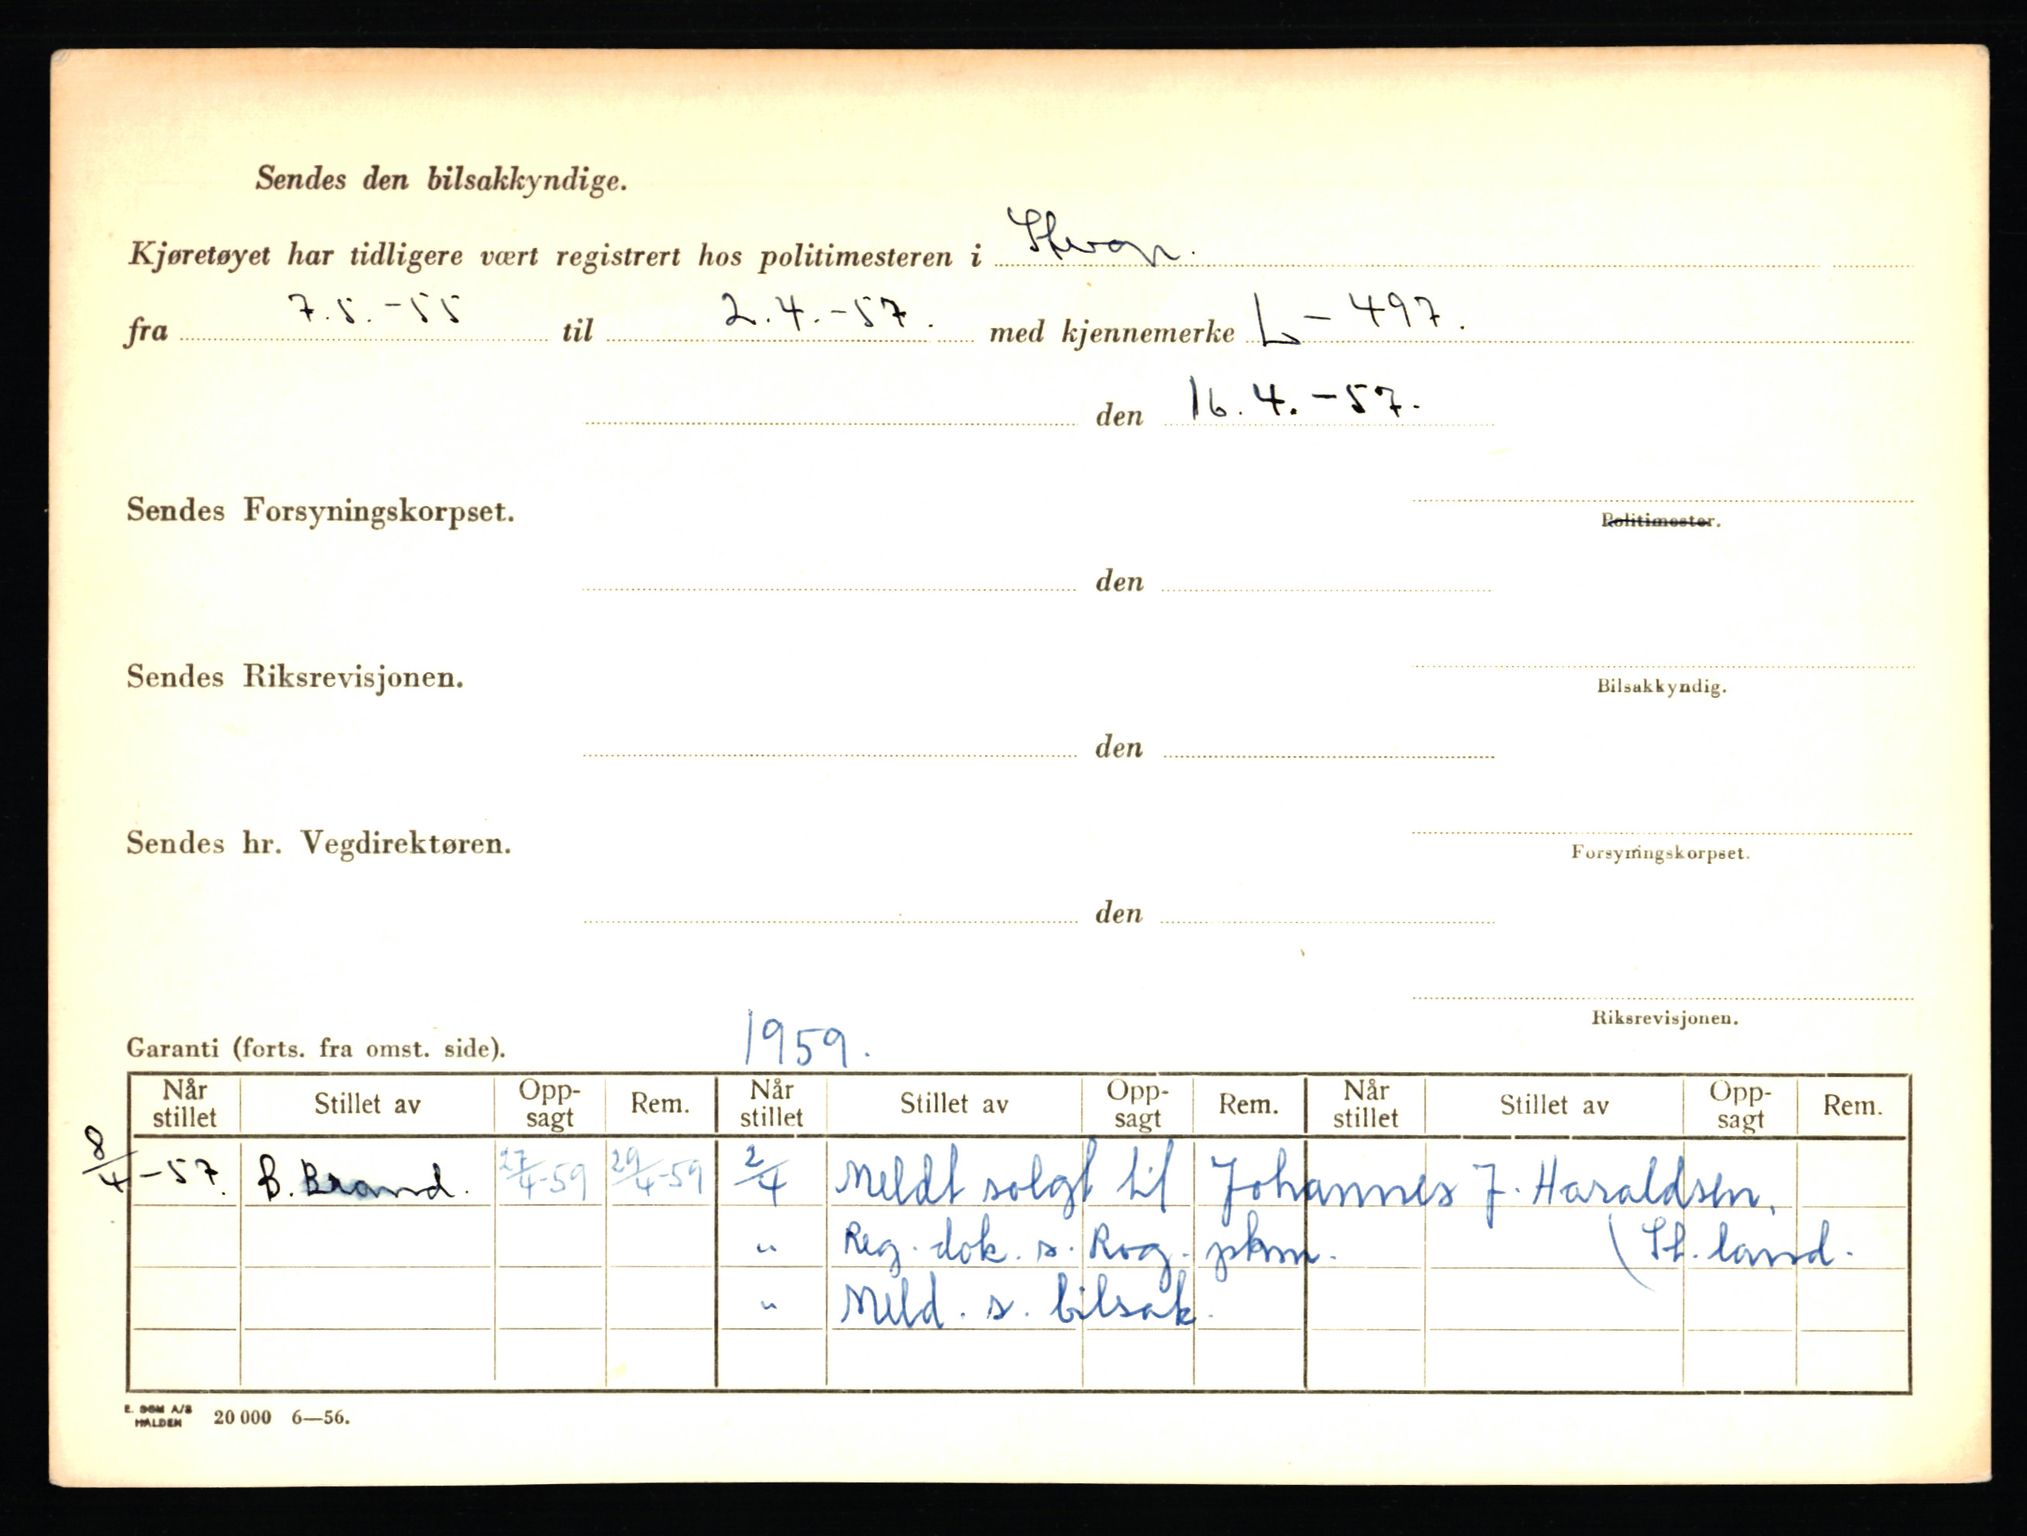 Sendes den bilsakkyndige.
Kjøretøyet har tidligere vært registrert hos politimesteren i
fra 7.5.-55 til 2.4.-57. med kjennemerke L-497.
den 16.4.-57.
Sendes Forsyningskorpset.
Politimester.
den
Sendes Riksrevisjonen.
Bilsakkyndig.
den
Sendes hr. Vegdirektøren.
Forsyningskorpset.
den
Riksrevisjonen.
Garanti (forts. fra omst. side). 1959.
Når stillet Stillet av Opp-sagt Rem. Når stillet Stillet av Opp-sagt Rem. Når stillet Stillet av Opp-sagt Rem.
8/4-57. B. Brand. 27/4-59 29/4-59 2/4 Meldt solgt til Johannes J. Haraldsen,
" Reg. dok. s. Rog. pkm. (St. land.
" Meld. s. bilsak.
E. SEM A/S
HALDEN 20 000 6—56.